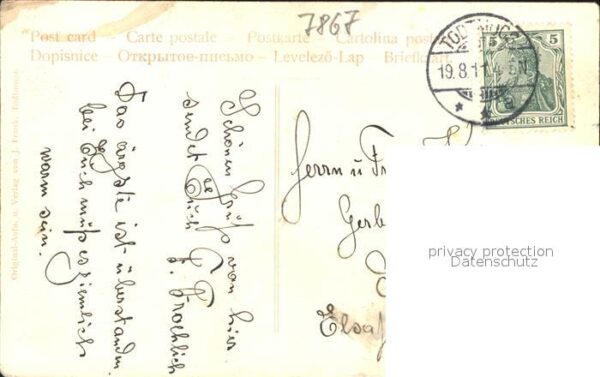 7867
Post card – Carte postale – Postkarte – Cartolina postale
Dopisnice – Открытое письмо – Levelező-Lap – Briefkaart
19.8.11.4-5N.
5
5
DEUTSCHES REICH
Schönen Gruß von hier
sendet Euch
F. Froehlich
Das ärgste ist überstanden
bei Euch muß es ziemlich
warm sein.
Herrn u Fr
Gerb
Elsaß
privacy protection
Datenschutz